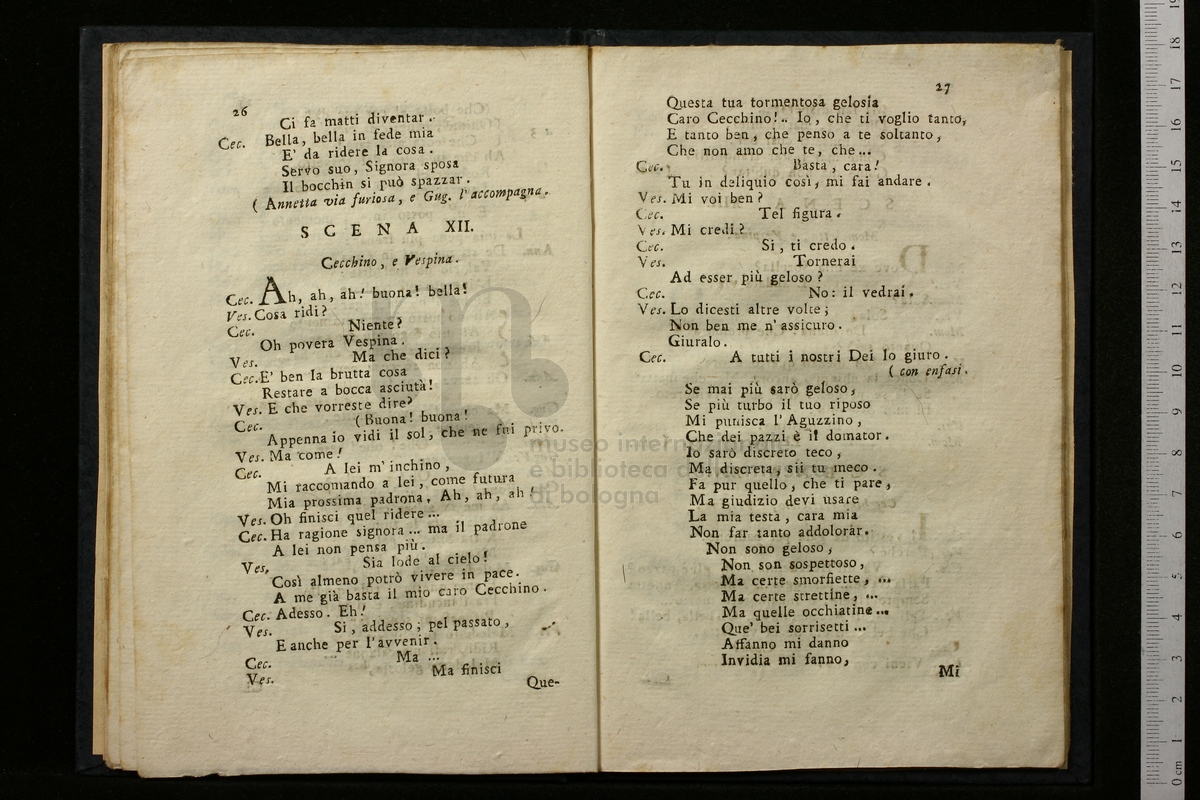 26
Ci fa matti diventar.
Cec. Bella, bella in fede mia
E' da ridere la cosa.
Servo suo, Signora sposa
Il bocchin si può spazzar.
( Annetta via furiosa, e Gug. l'accompagna.
SCENA XII.
Cecchino, e Vespina.
Cec. Ah, ah, ah! buona! bella!
Ves. Cosa ridi?
Cec. Niente?
Oh povera Vespina.
Ves. Ma che dici?
Cec. E' ben la brutta cosa
Restare a bocca asciuta!
Ves. E che vorreste dire?
Cec. (Buona! buona!
Appenna io vidi il sol, che ne fui privo.
Ves. Ma come!
Cec. A lei m'inchino,
Mi raccomando a lei, come futura
Mia prossima padrona. Ah, ah, ah!
Ves. Oh finisci quel ridere ...
Cec. Ha ragione signora ... ma il padrone
A lei non pensa più.
Ves. Sia lode al cielo!
Così almeno potrò vivere in pace.
A me già basta il mio caro Cecchino.
Cec. Adesso. Eh!
Ves. Si, addesso; pel passato,
E anche per l'avvenir.
Cec. Ma ...
Ves. Ma finisci
Que-
27
Questa tua tormentosa gelosia
Caro Cecchino!.. Io, che ti voglio tanto,
E tanto ben, che penso a te soltanto,
Che non amo che te, che...
Cec. Basta, cara!
Tu in deliquio così, mi fai andare.
Ves. Mi voi ben?
Cec. Tel figura.
Ves. Mi credi?
Cec. Si, ti credo.
Ves. Tornerai
Ad esser più geloso?
Cec. No: il vedrai.
Ves. Lo dicesti altre volte;
Non ben me n'assicuro.
Giuralo.
Cec. A tutti i nostri Dei lo giuro.
( con enfasi.
Se mai più sarò geloso,
Se più turbo il tuo riposo
Mi punisca l'Aguzzino,
Che dei pazzi è il domator.
Io sarò discreto teco,
Ma discreta, sii tu meco.
Fa pur quello, che ti pare,
Ma giudizio devi usare
La mia testa, cara mia
Non far tanto addolorar.
Non sono geloso,
Non son sospettoso,
Ma certe smorfiette, ...
Ma certe strettine, ...
Ma quelle occhiatine...
Que' bei sorrisetti ...
Affanno mi danno
Invidia mi fanno,
Mi
museo internazionale
e biblioteca della musica
di bologna